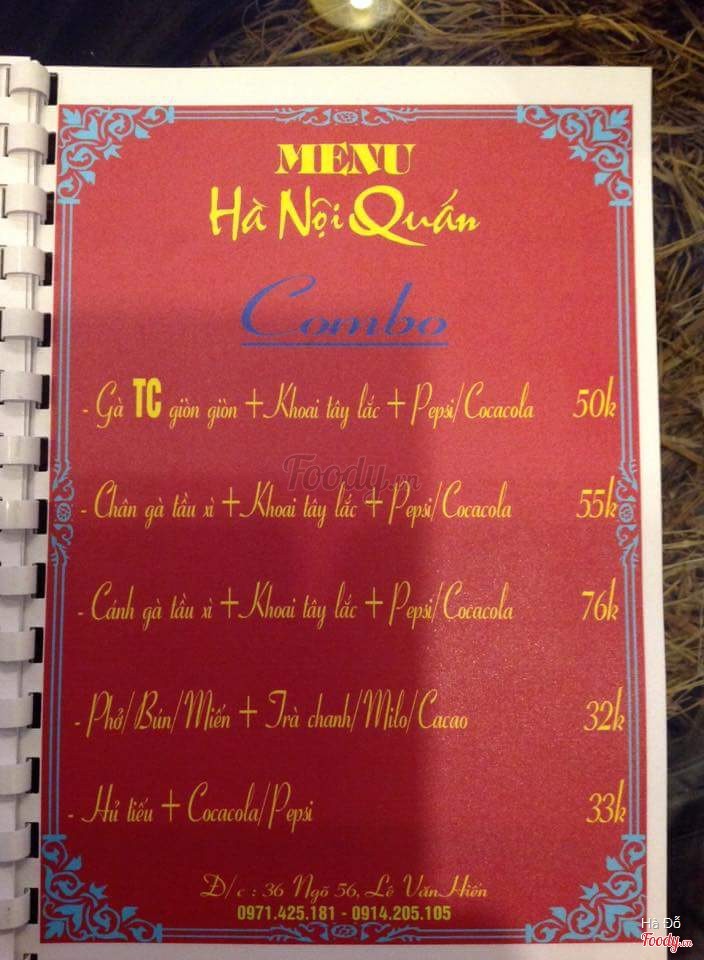 MENU
Hà Nội Quán
Combo
- Gà TC giòn giòn + Khoai tây lắc + Pepsi/Cocacola 50k
Foody.vn
- Chân gà tầu xì + Khoai tây lắc + Pepsi/Cocacola 55k
- Cánh gà tầu xì + Khoai tây lắc + Pepsi/Cocacola 76k
- Phở/Bún/Miến + Trà chanh/Milo/Cacao 32k
- Hủ tiếu + Cocacola/Pepsi 33k
Đ/c : 36 Ngõ 56, Lê Văn Hiến
0971.425.181 - 0914.205.105
Hà Đỗ
Foody.vn